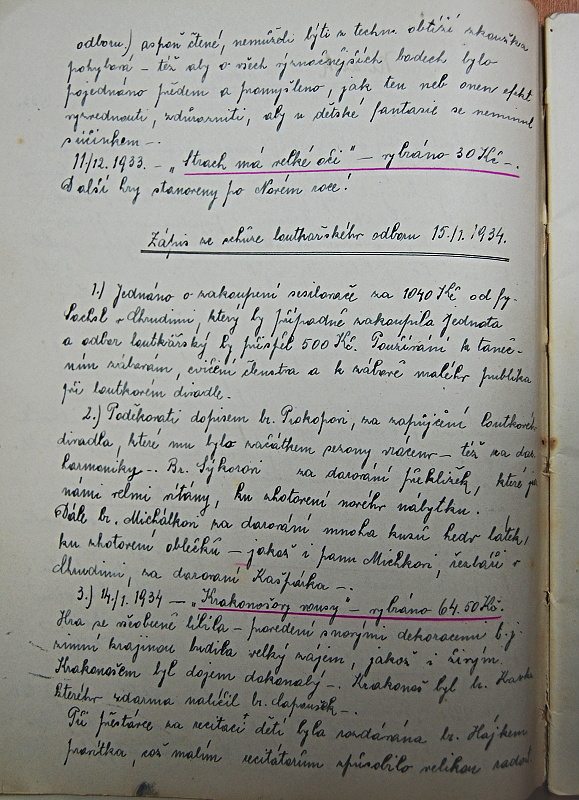 odboru.) aspoň čtené, nemůželi býti z techn. obtíží zkouška
pohybová – též aby o všech význačnějších bodech bylo
pojednáno předem a promyšleno, jak ten neb onen efekt
vyzvednouti, zdůrazniti, aby u dětské fantasie se neminul
s účinkem –.
11/12. 1933. – „Strach má velké oči" – vybráno 30 Kč –.
Další hry stanoveny po Novém roce!
Zápis ze schůze loutkařského odboru 15./1. 1934.
1.) Jednáno o zakoupení sesilovače za 1040 Kč od fy.
Sochsl v Chrudimi, který by případně zakoupila Jednota
a odbor loutkářský by přispěl 500 Kč. Používání k taneč-
ním zábavám, cvičení členstva a k zábavě malého publika
při loutkovém divadle.
2.) Poděkovati dopisem br. Prokopovi, za zapůjčení loutkového
divadla, které mu bylo začátkem sezony vráceno – též za dar
harmoniky –. Br. Sýkorovi za darování překližek, které jsou
námi velmi vítány, ku zhotovení nového nábytku.
Dále br. Michálkovi za darování mnoha kusů hedv. látek,
ku zhotovení oblečků – jakož i panu Michkovi, řezbáři v
Chrudimi, za darování Kašpárka –.
3.) 14./1. 1934 – „Krakonošovy vousy" – vybráno 64.50 Kč.
Hra se všeobecně líbila – provedení s novými dekoracemi b.j.
zimní krajinou budila velký zájem, jakož i živým
Krakonošem byl dojem dokonalý –. Krakonoš byl br. Havka
kterého zdarma nalíčil br. Lapoušek –.
Při přestávce za recitaci dětí byla rozdávána br. Hájkem
pravítka, což malým recitátorům způsobilo velikou radost